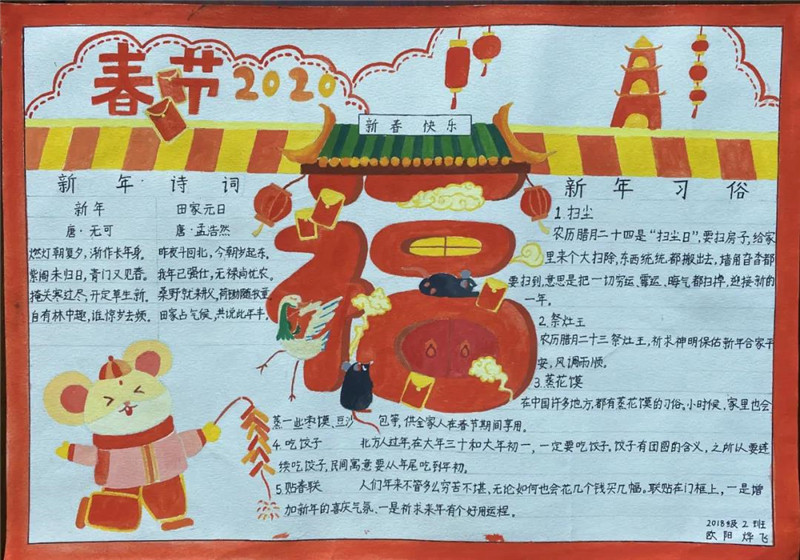 春节2020
新春 快乐
新年诗词
新年
唐·无可
燃灯朝复夕，渐作长年身。
紫阁未归日，青门又见春。
掩关寒过尽，开定草生新。
自有林中趣，谁惊岁去频。
田家元日
唐·孟浩然
昨夜斗回北，今朝岁起东。
我年已强仕，无禄尚忧农。
桑野就耒父，荷锄随牧童。
田家占气候，共说此年丰。
福
新年习俗
1.扫尘
农历腊月二十四是“扫尘日”，要扫房子，给家
里来个大扫除，东西统统都搬出去，墙角旮旯都
要扫到，意思是把一切穷运、霉运、晦气都扫掉，迎接新的
一年。
2.祭灶王
农历腊月二十三祭灶王，祈求神明保佑新年合家平
安，风调雨顺。
3.蒸花馍
在中国许多地方，都有蒸花馍的习俗。小时候，家里也会
蒸一业枣馍、豆沙 包等，供全家人在春节期间享用。
4.吃饺子 北方人过年，在大年三十和大年初一，一定要吃饺子。饺子有团圆的含义，之所以要连
续吃饺子，民间寓意要从年尾吃到年初。
5.贴春联 人们年来不管多么穷苦不堪，无论如何也会花几个钱买几幅。联贴在门框上，一是增
加新年的喜庆气氛、一是祈求来年有个好用运程。
2018级2班
欧阳烨飞